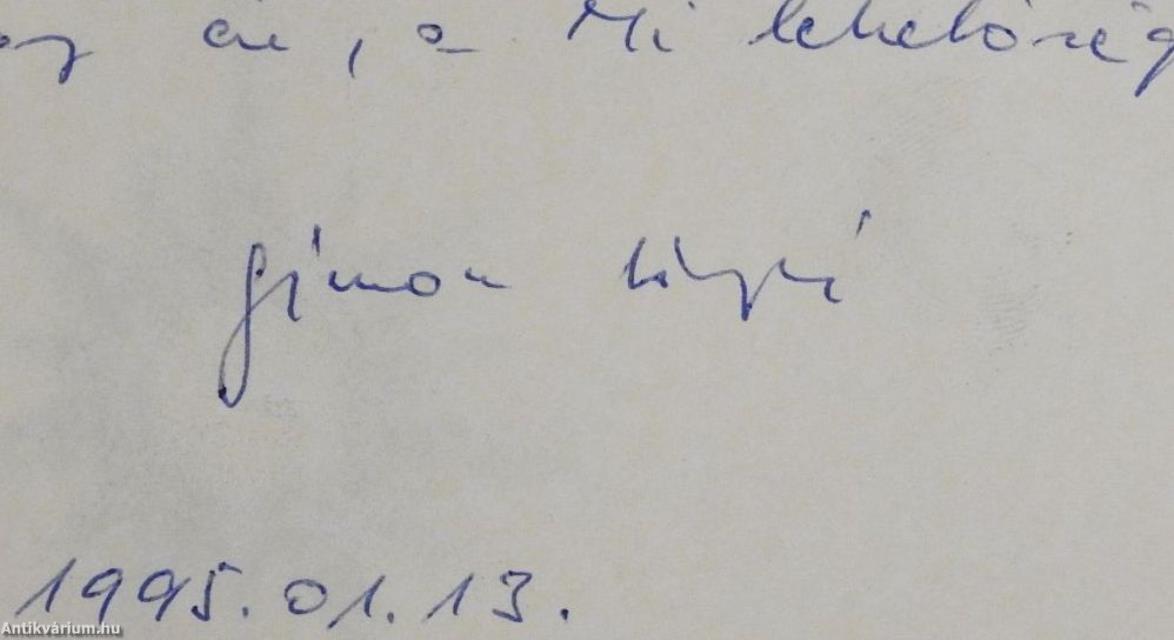 , a Mi lehetőség
Simon
1995.01.13.
Antikvárium.hu